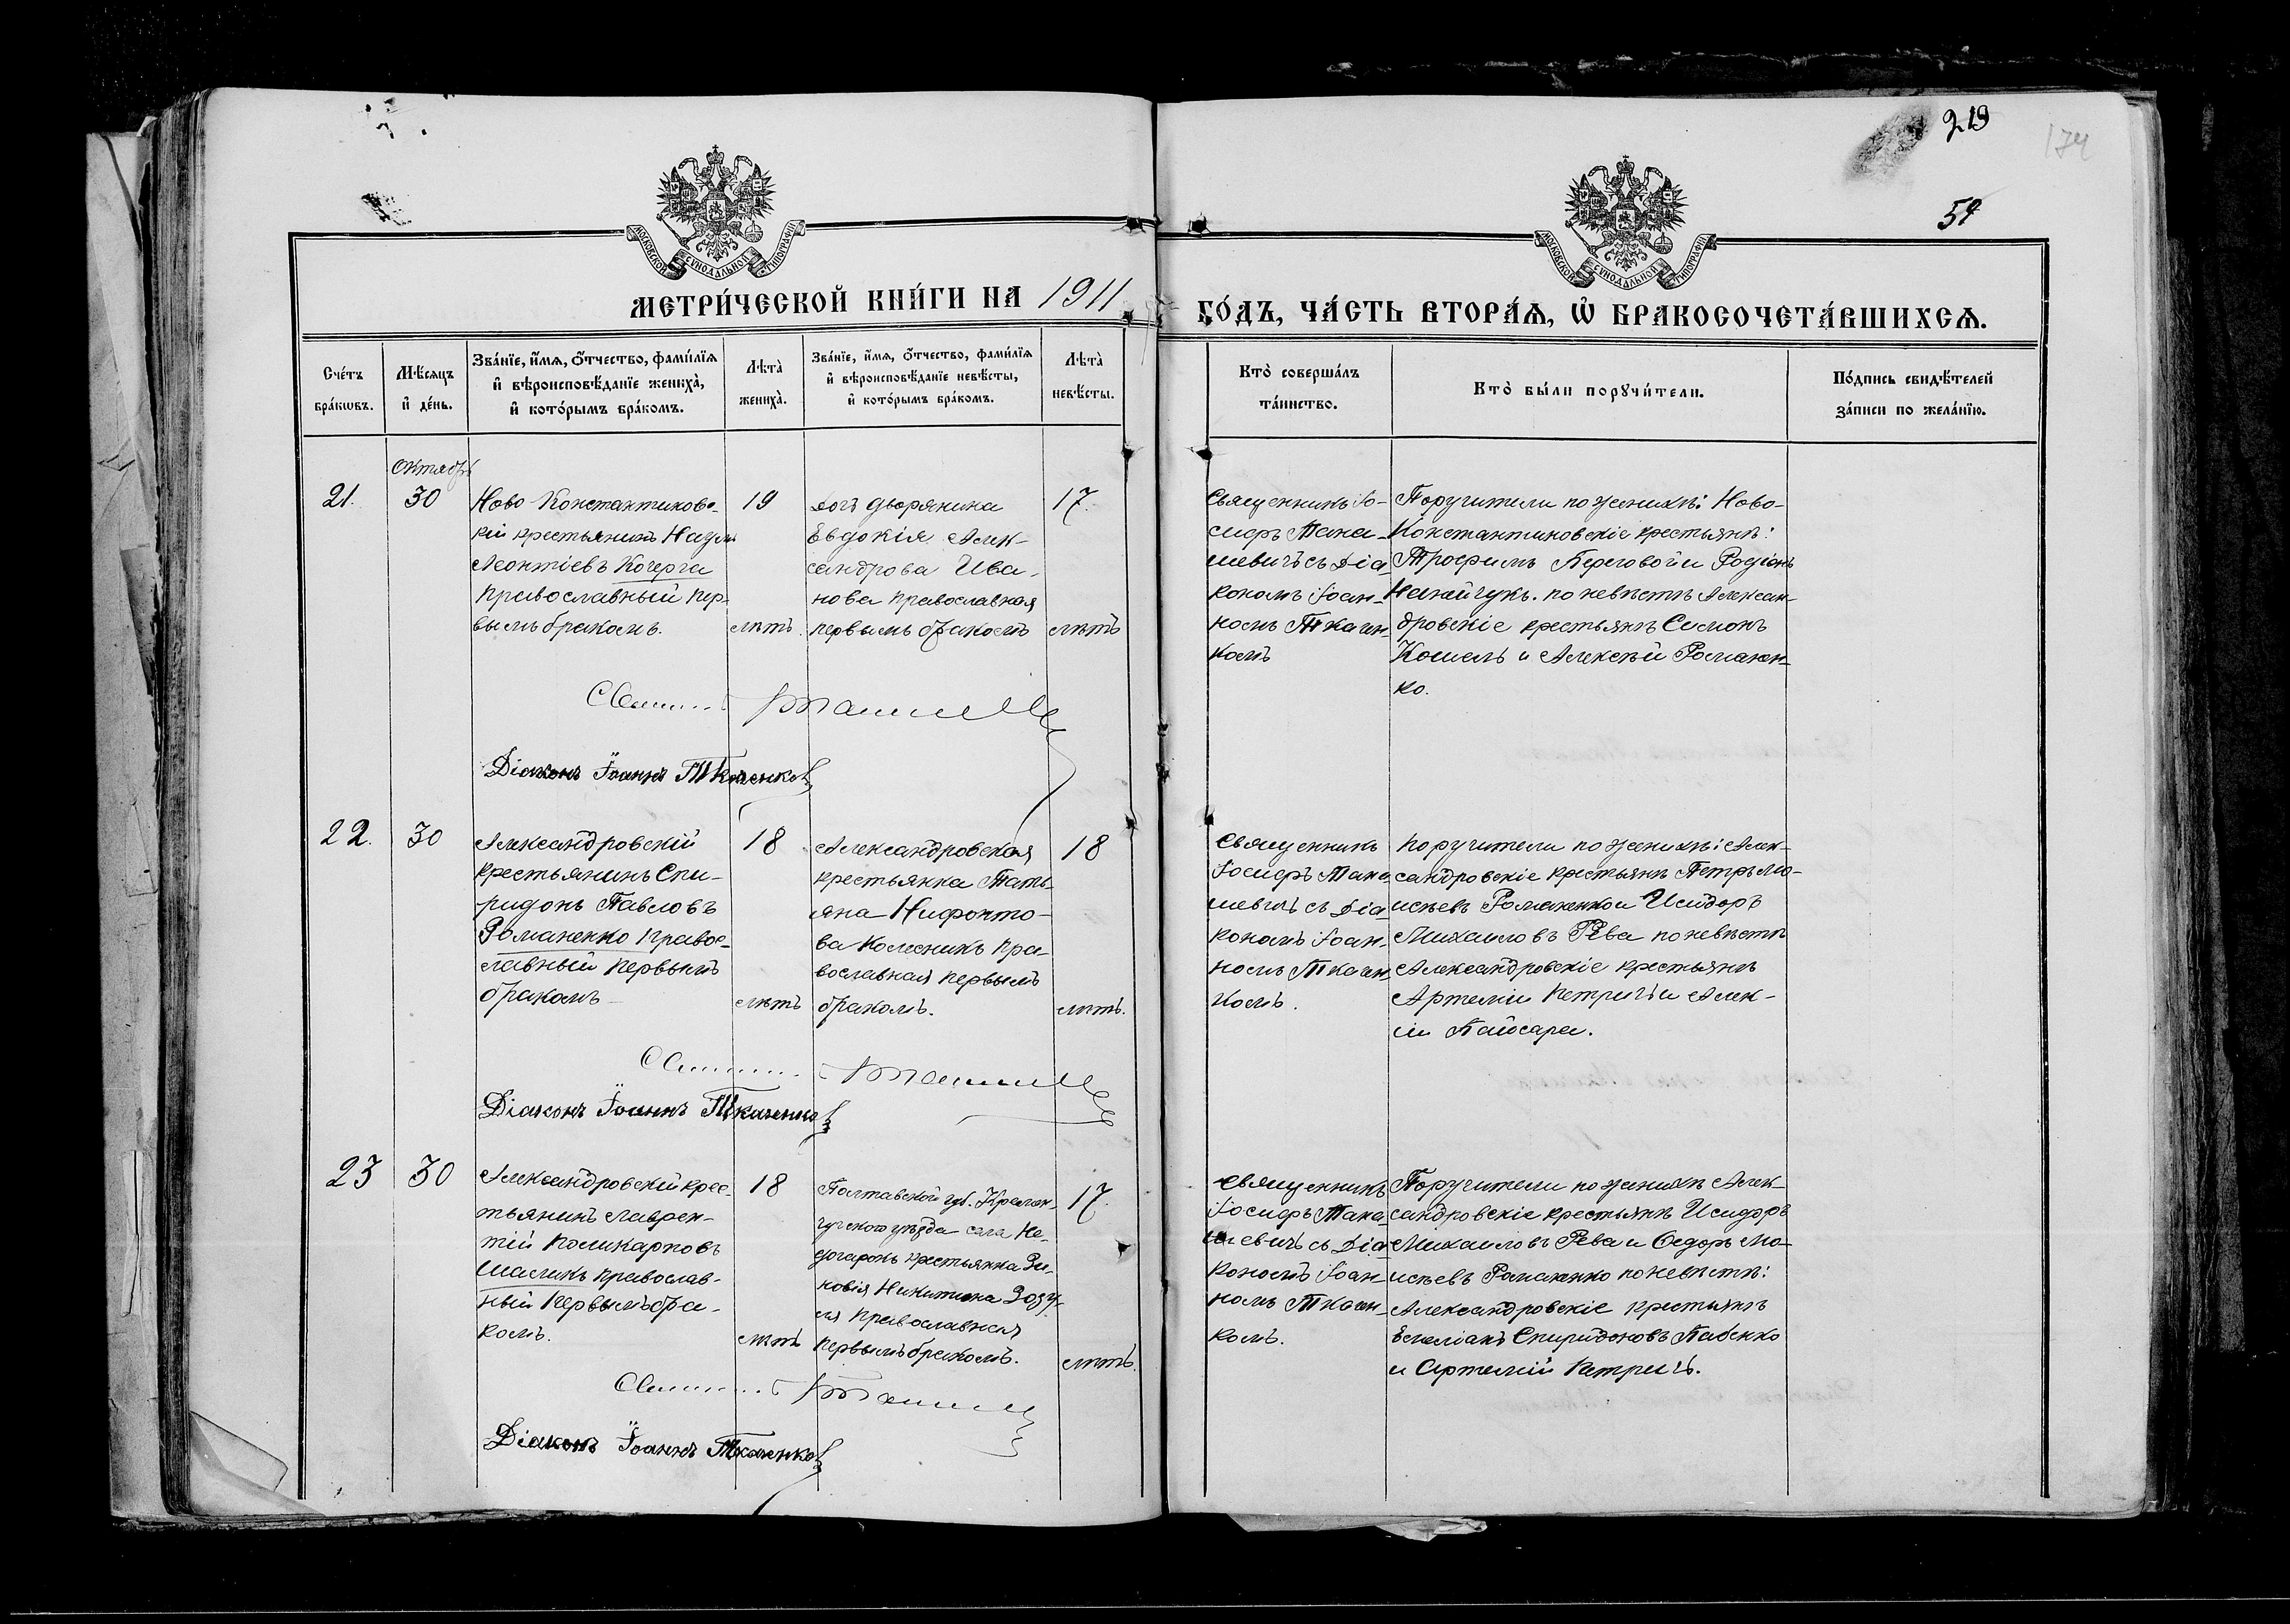 219
174
54
МОСКОВСКОЙ СѴНОДАЛЬНОЙ ТИПОГРАФІИ
МОСКОВСКОЙ СѴНОДАЛЬНОЙ ТИПОГРАФІИ
МЕТРИ́ЧЕСКОЙ КНИ́ГИ НА 1911
ГО́ДЪ, ЧА́СТЬ ВТОРА́Я, Ѽ БРАКОСОЧЕТА́ВШИХСЯ.
Сче́тъ
бра́кѡвъ.
Мѣ́сяцъ
и҆ де́нь.
Зва́нїе, и҆́мя, ѻ҆́тчество, фами́лїя
и҆ вѣроисповѣ́данїе жениха̀,
и҆ кото́рымъ бра́комъ.
Лѣта̀
жениха̀.
Зва́нїе, и҆́мя, ѻ҆́тчество, фами́лїя
и҆ вѣроисповѣ́данїе невѣ́сты,
и҆ кото́рымъ бра́комъ.
Лѣта̀
невѣ́сты.
Кто̀ соверша́лъ
та́инство.
Кто̀ бы́ли порꙋчи́тели.
По́дпись свидѣ́телей
за́писи по жела́нїю.
Октябрь
21.
30
Ново-Константиновс-
кій крестьянинъ Наумъ
Леонтіевъ Кочерга
православный пер-
вымъ бракомъ.
19
лѣтъ.
дочь дворянина
Евдокія Алек-
сандрова Ива-
нова православная
первымъ бракомъ
17.
лѣтъ
Священникъ Іо-
сифъ Мана-
шевичъ съ діа-
кономъ Іоан-
номъ Ткачен-
комъ
Поручители по женихѣ: Ново-
Константиновскіе крестьянѣ:
Трофимъ Береговой и Родіонъ
по невѣстѣ Алексан-
дровскіе крестьянѣ Симонъ
Кошель и Алексѣй Романен-
ко.
Діаконъ Іоаннъ Ткаченко
22.
30
Александровскій
крестьянинъ Спи-
ридонъ Павловъ
Романенко правос-
лавный первымъ
бракомъ
18
лѣтъ
Александровская
крестьянка Тать-
яна Нифонто-
ва Колесникъ пра-
вославная первымъ
бракомъ.
18
лѣтъ.
Священникъ
Іосифъ Мана-
шевичъ съ діа-
кономъ Іоан-
номъ Ткачен-
комъ.
поручители по женихѣ: Алек-
сандровскіе крестьянѣ Петръ Мо-
исѣевъ Романенко и Исидоръ
Михаиловъ Рева по невѣстѣ
Александровскіе крестьянѣ
Артемій Петричъ и Алек-
ій
Діаконъ Іоаннъ Ткаченко
23
30
Александровскій крес-
тьянинъ Лаврен-
тій Поликарповъ
Шаликъ православ-
ный первымъ бра-
комъ.
18
лѣтъ
Полтавской губ. Кремен-
чугскаго уѣзда села Не-
догарокъ крестьянка Зи-
новія Никитина Зозу-
ля православная
первымъ бракомъ.
17.
лѣтъ.
Священникъ
Іосифъ Мана-
шевичъ съ діа-
кономъ Іоан-
номъ Ткачен-
комъ.
Поручители по женихѣ Алек-
сандровскіе крестьянѣ Исидоръ
Михаиловъ Рева и Ѳедоръ Мо-
исѣевъ Романенко по невѣстѣ:
Александровскіе крестьянѣ
Емеліанъ Спиридоновъ Бабенко
и Артемій Петричъ.
Діаконъ Іоаннъ Ткаченко